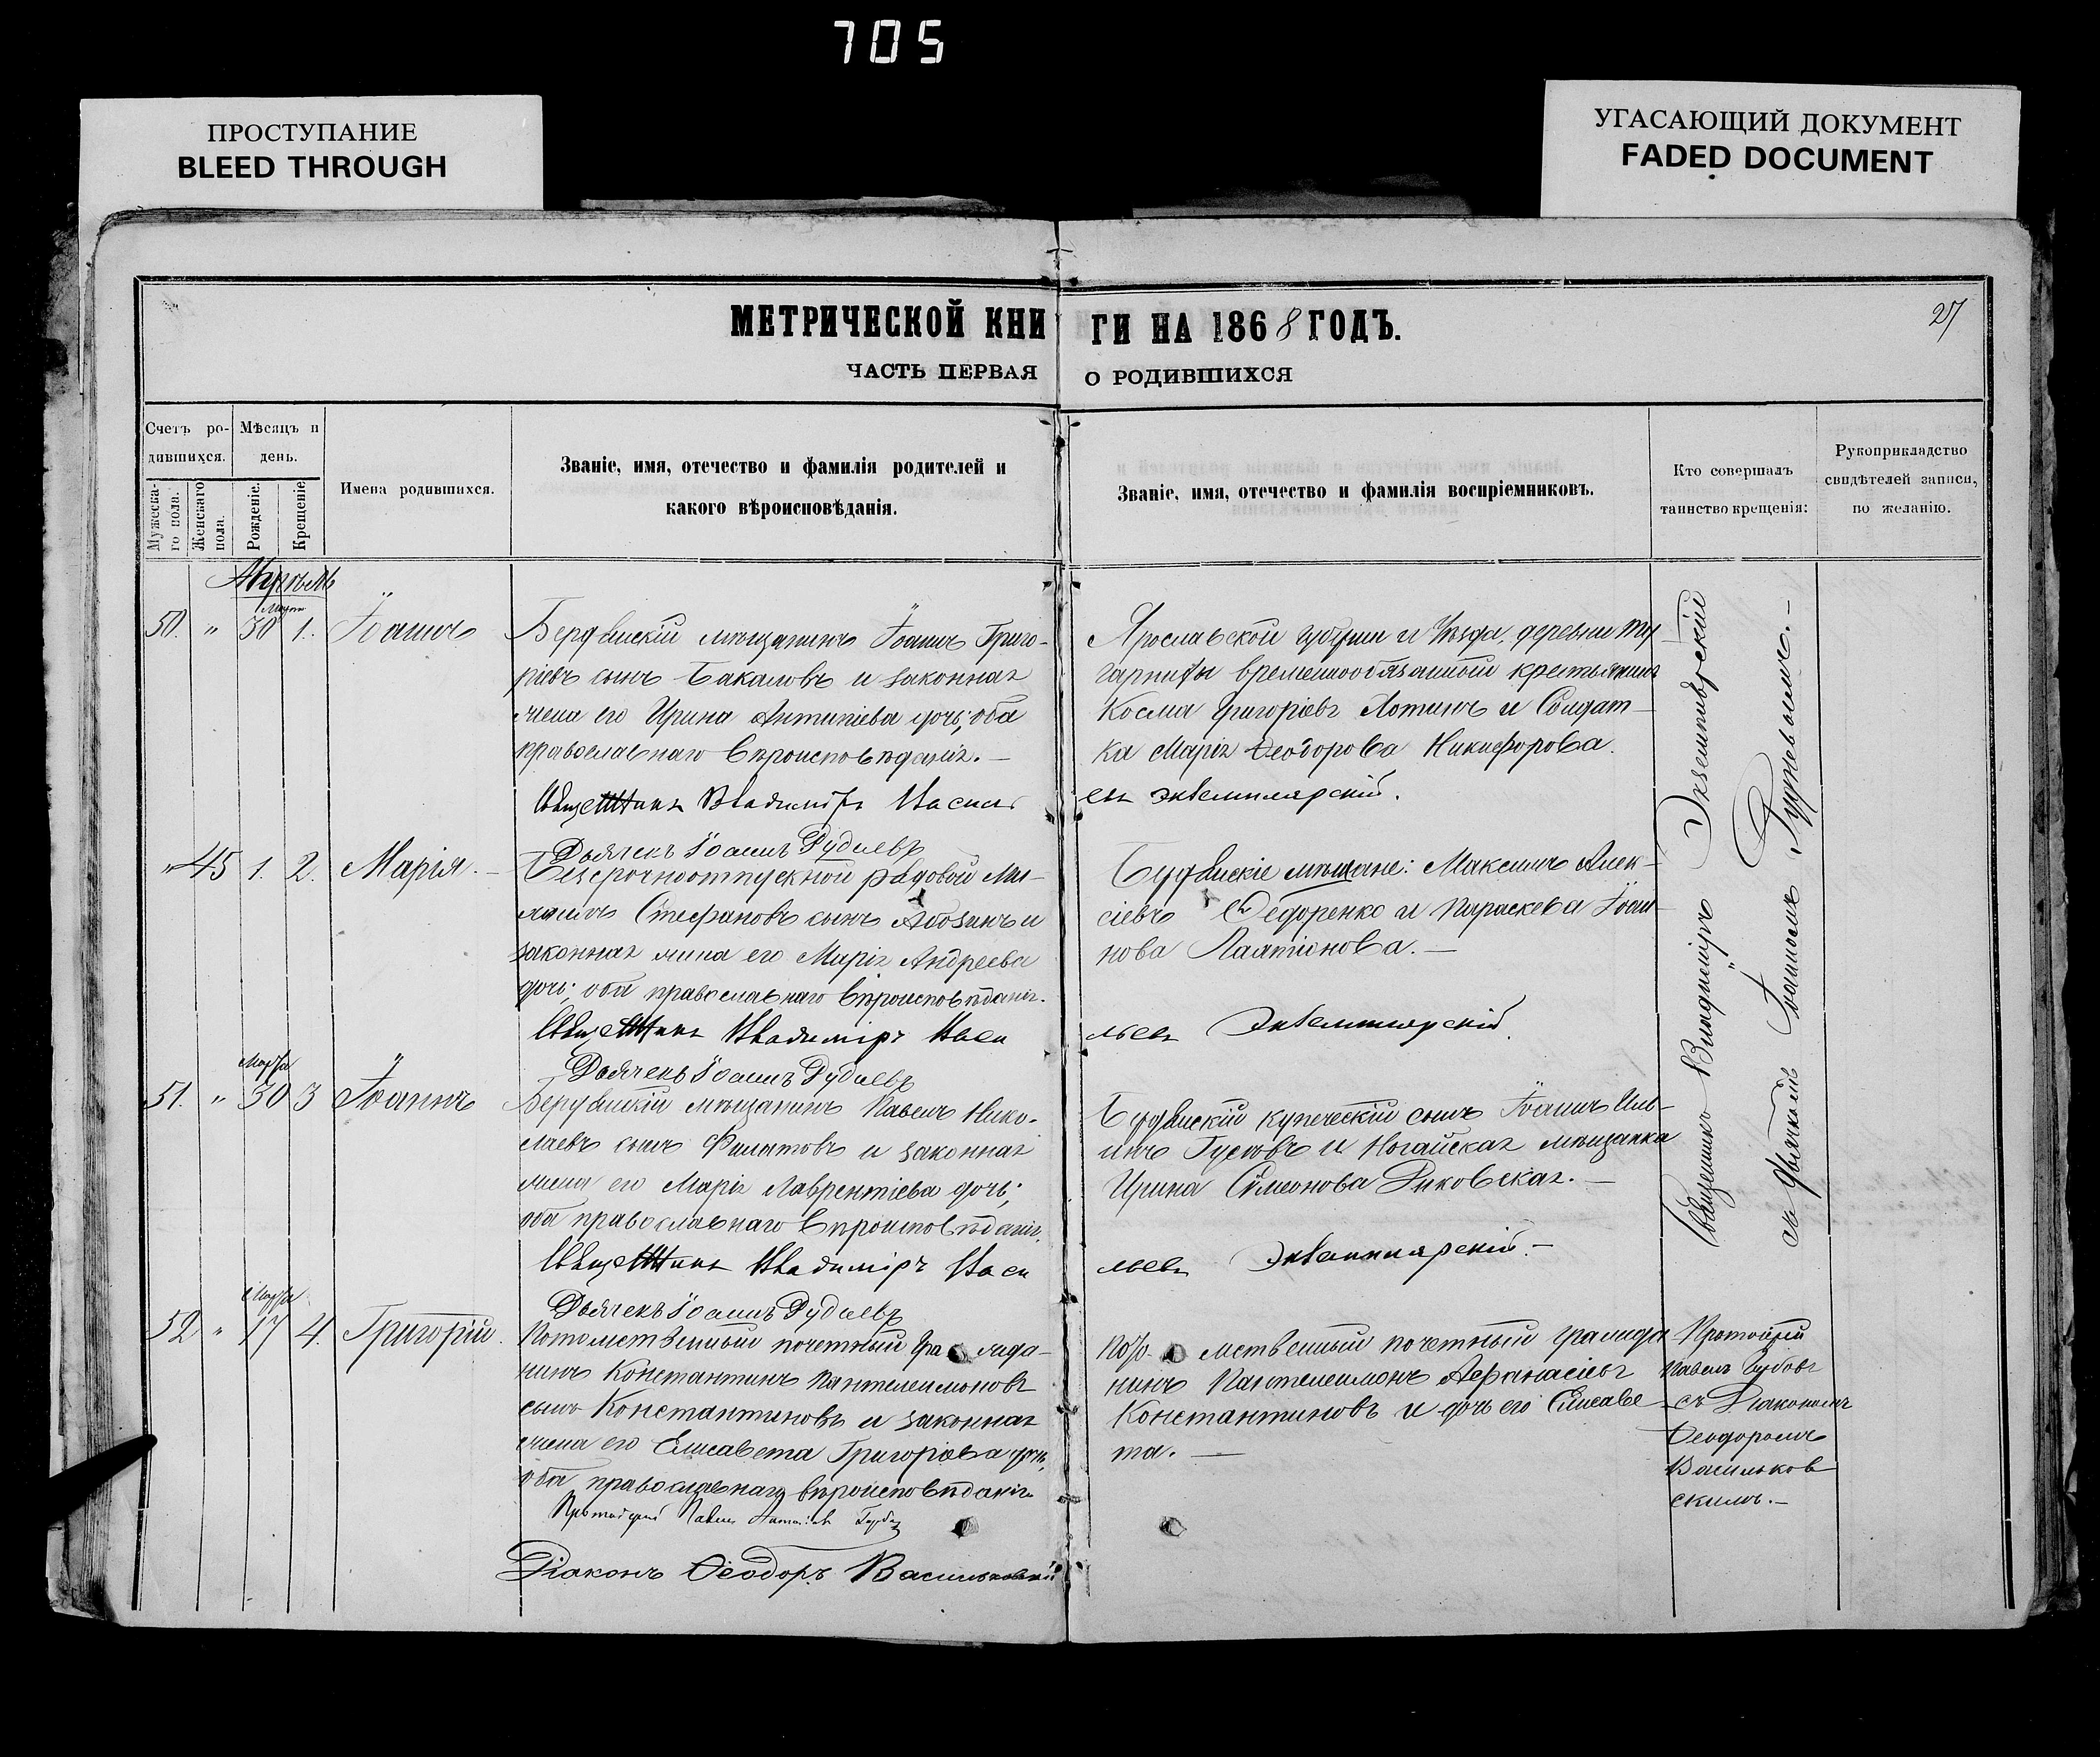 705
ПРОСТУПАНИЕ
BLEED THROUGH
УГАСАЮЩИЙ ДОКУМЕНТ
FADED DOCUMENT
27
МЕТРИЧЕСКОЙ КНИ ГИ НА 1868 ГОДЪ.
ЧАСТЬ ПЕРВАЯ О РОДИВШИХСЯ
Счетъ ро-
дившихся.
Мужеска-
го пола.
Женскаго
пола.
Мѣсяцъ и
день.
Рожденіе.
Крещеніе
Имена родившихся.
Званіе, имя, отечество и фамилія родителей и
какого вѣроисповѣданія.
Званіе, имя, отечество и фамилія воспріемниковъ.
Кто совершалъ
таинство крещенія:
Рукоприкладство
свидѣтелей записи,
по желанію.
Апрѣль
Март
50. " 30 1. Іоаннъ
Бердянскій мѣщанинъ Іоаннъ Григо-
ріевъ сынъ Бакаловъ и законная
жена его Ирина Антипіева дочь; оба
православнаго вѣроисповѣданія.—
Ярославской губерніи и уѣзда, деревни
временнообязанный крестьянинъ
Косма Григоріевъ Лотинъ и Солдат-
ка Марія Ѳеодорова Никифорова.
Священникъ Владиміръ Василь
евъ Экземплярскій.
Дьячекъ Іоаннъ Рудневъ
" 45 1. 2. Марія.—
Безсрочноотпускной рядовой
Стефановъ сынъ и
законная жена его Марія Андреева
дочь; оба православнаго вѣроисповѣданія.
Бердянскіе мѣщане: Максимъ Алек-
сіевъ Федоренко и Параскева Іоан-
нова Лаатіонова.—
Священникъ Владиміръ Васи
льевъ Экземплярскій.
Дьячекъ Іоаннъ Рудневъ
Марта
51. " 30 3 Іоаннъ
Бердянскій мѣщанинъ Павелъ Нико-
лаевъ сынъ Филатовъ и законная
жена его Марія Лаврентіева дочь;
оба православнаго вѣроисповѣданія.
Бердянскій купеческій сынъ Іоаннъ Иль-
инъ Гусевъ и Ногайская мѣщанка
Ирина Симеонова Рыковская.—
Священникъ Владиміръ Васи
льевъ Экземплярскій.—
Дьячекъ Іоаннъ Рудневъ
Священникъ Владиміръ Экземплярскій
съ дьячкомъ Іоанномъ Рудневымъ.—
Марта
52 " 17 4. Григорій.
Потомственный почетный гражда-
нинъ Константинъ Пантелеимоновъ
сынъ Константиновъ и законная
жена его Елисавета Григоріева дочь,
оба православнаго вѣроисповѣданія
Потомственный почетный гражда
нинъ Пантелеимонъ Аѳанасіевъ
Константиновъ и дочь его Елисаве
та.—
Протоіерей
Павелъ
съ Діакономъ
Ѳеодоромъ
Васильков
скимъ.—
Протоіерей Павелъ
Діаконъ Ѳеодоръ Васильковскій